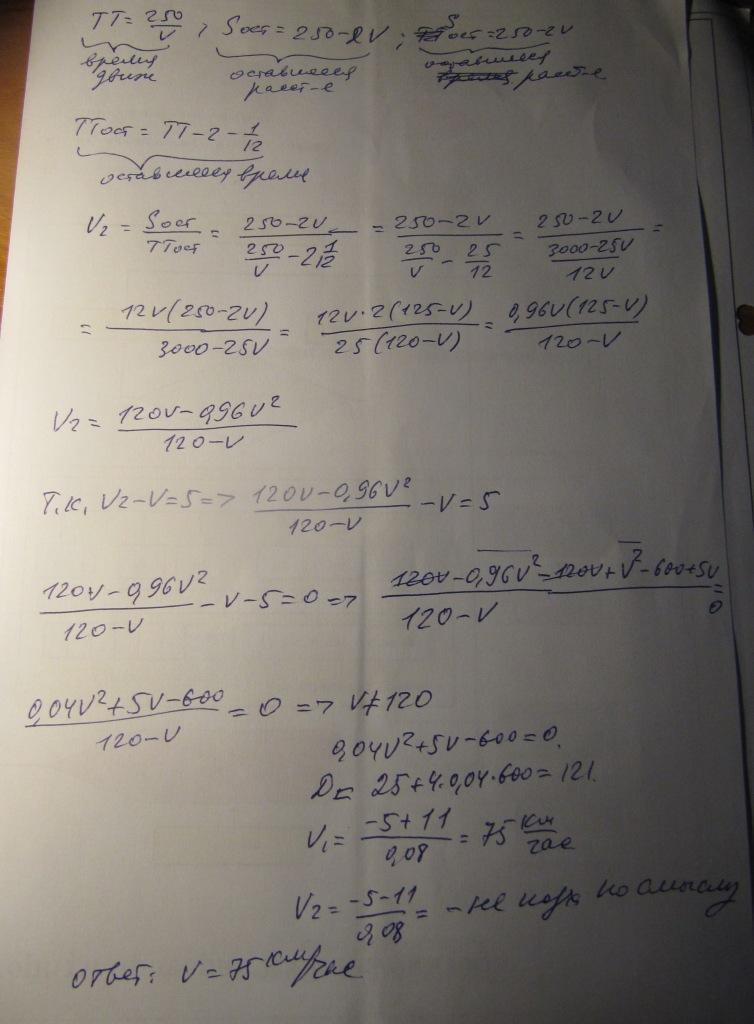 TT = 250/V ; Sост = 250-2V ; Sост = 250-2V
время движ
оставшееся расст-е
оставшееся расст-е
TTост = TT - 2 - 1/12
оставшееся время
V2 = Sост/TTост = (250-2V)/(250/V - 2 1/12) = (250-2V)/(250/V - 25/12) = (250-2V)/((3000-25V)/12V) =
= 12V(250-2V)/(3000-25V) = 12V·2(125-V)/25(120-V) = 0,96V(125-V)/(120-V)
V2 = (120V-0,96V²)/(120-V)
Т.к. V2-V=5 => (120V-0,96V²)/(120-V) - V = 5
(120V-0,96V²)/(120-V) - V - 5 = 0 => (120V-0,96V²-120V+V²-600+5V)/(120-V) = 0
(0,04V²+5V-600)/(120-V) = 0 => V≠120
0,04V²+5V-600=0.
D= 25+4·0,04·600=121.
V1 = (-5+11)/0,08 = 75 км/час
V2 = (-5-11)/0,08 = - не подх по смыслу
ответ: V = 75 км/час